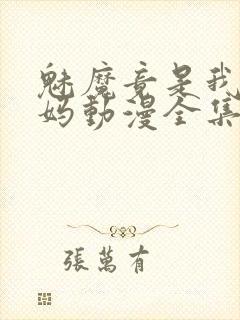 魅魔竟是我
妈動漫全集
張萬有